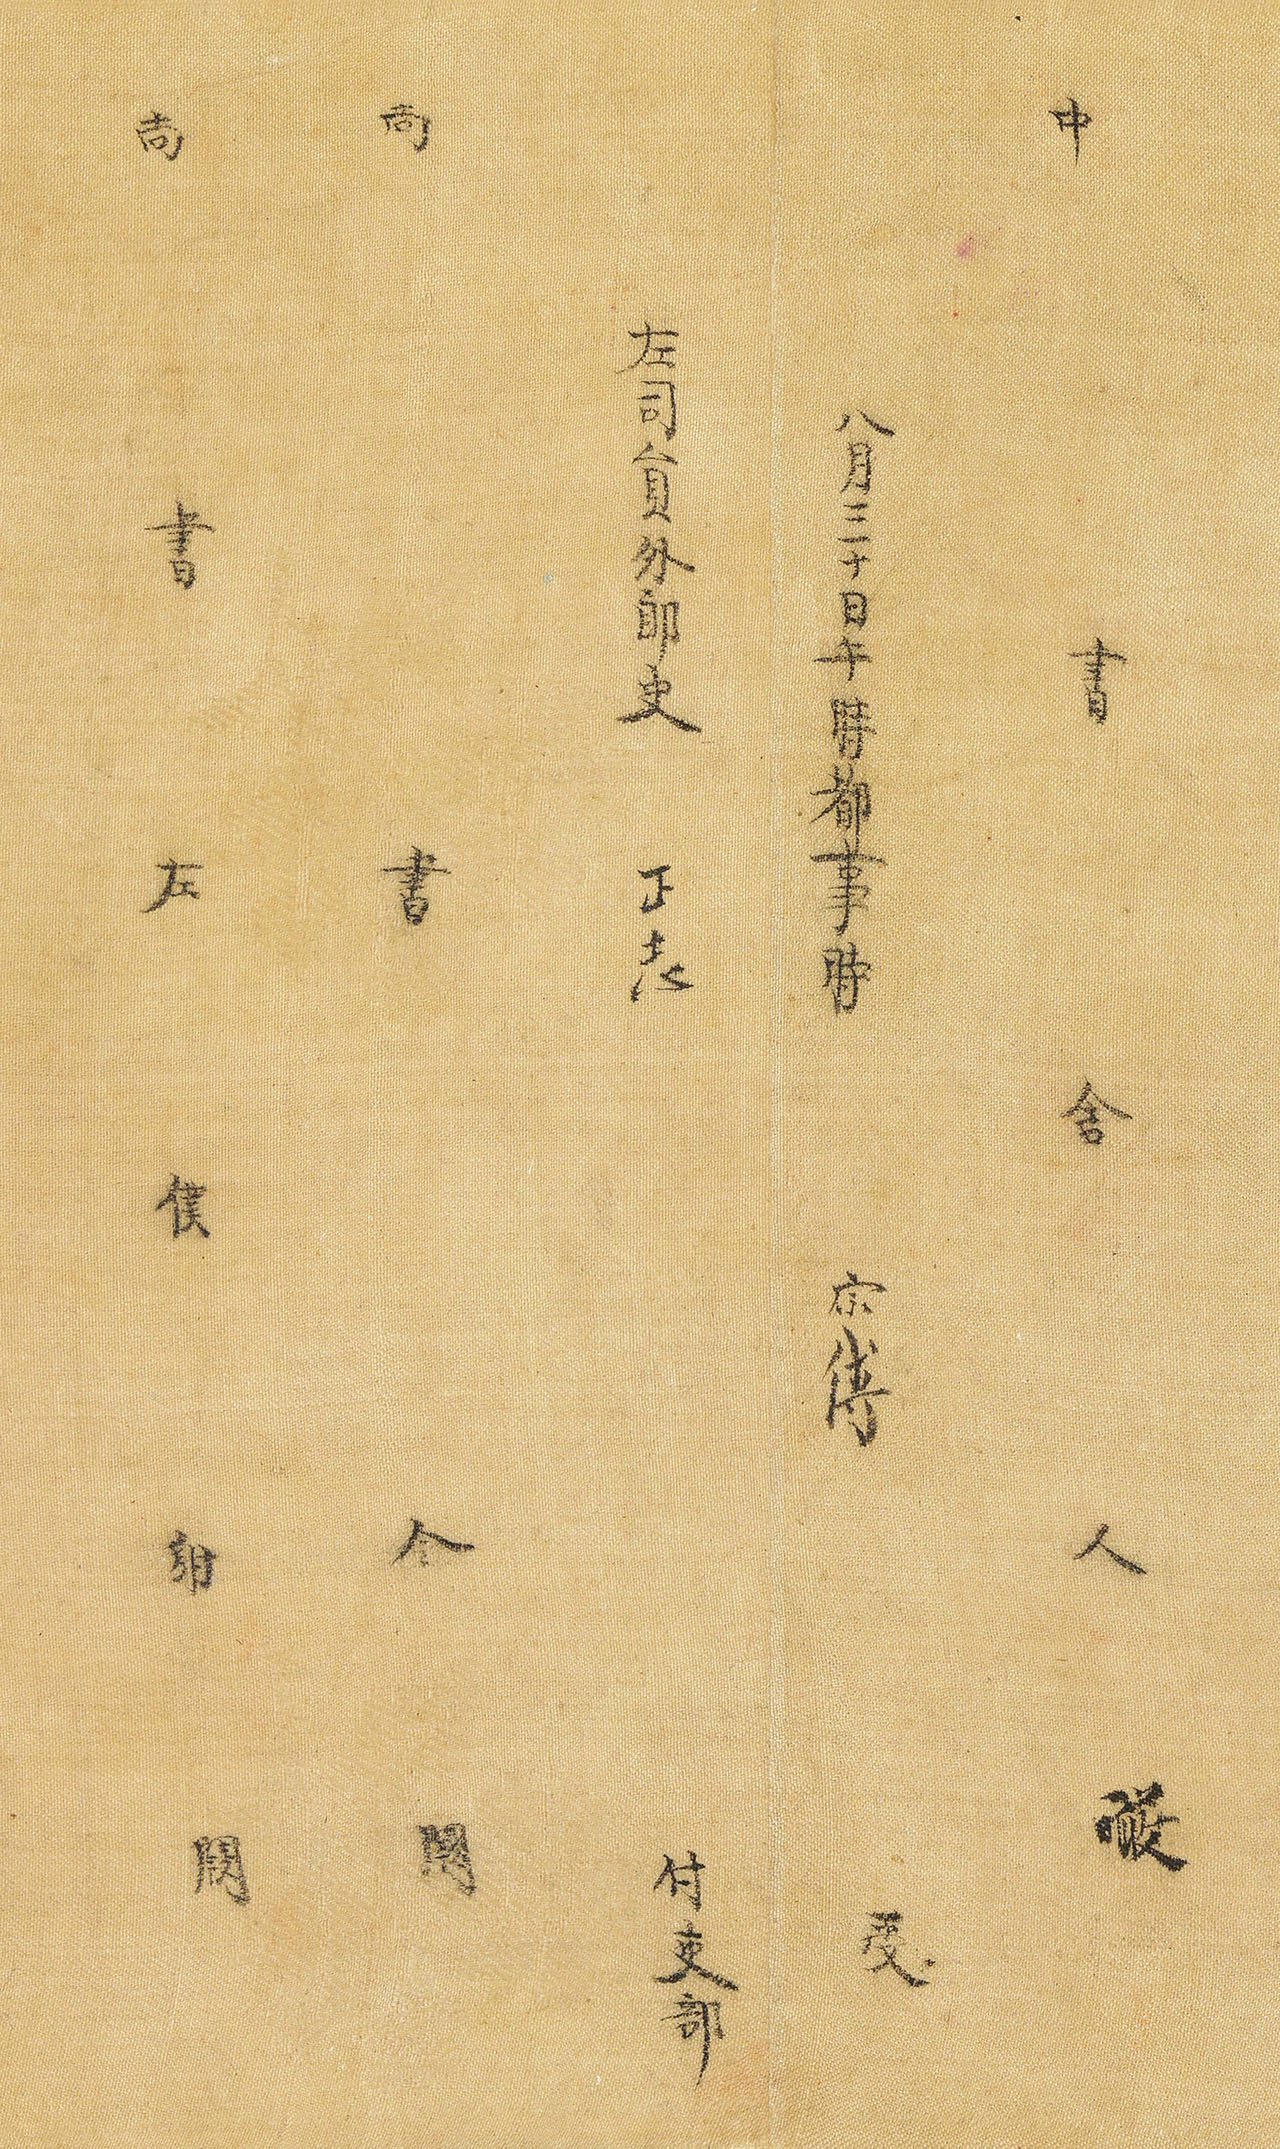 中書舍人
八月三十日午時都事時 宗傅 受
左司員外郎史 正志 付吏部
尚書令 闕
尚書左僕射 闕